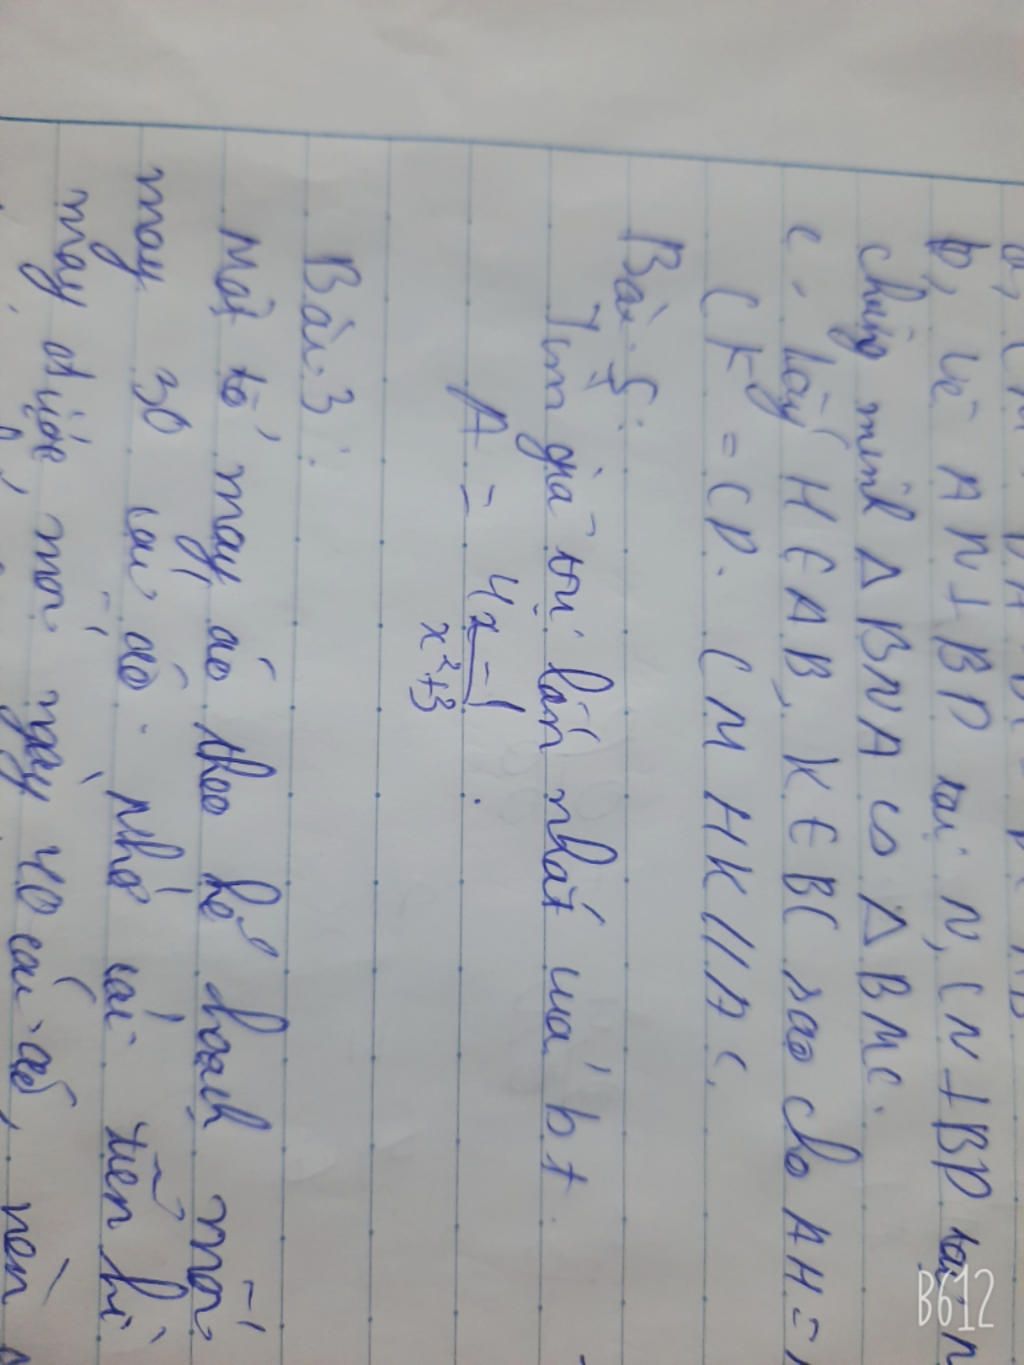 b, vẽ AN ⊥ BD tại N, CM ⊥ BD tại
chứng minh Δ BNA ∽ Δ BMC.
c, lấy H ∈ AB, K ∈ BC sao cho AH =
CK = CD. CM HK // AC.
Bài 5:
Tìm giá trị lớn nhất của bt.
A = 4x - 1 / x² + 3.
Bài 3:
Một tổ may áo theo kế hoạch mỗi
may 30 cái áo. Nhờ cải tiến kĩ
may được mỗi ngày 40 cái áo, nên
B612